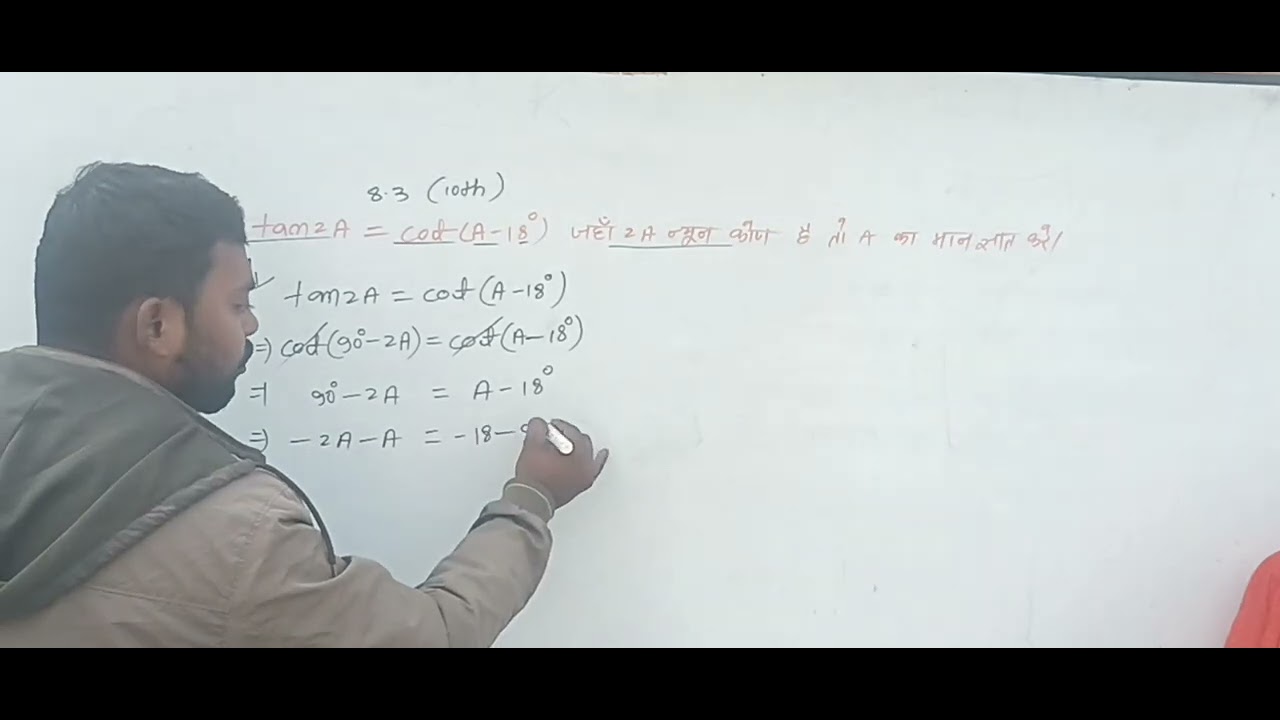 8.3 (10th)
tan2A = cot(A-18°) जहाँ 2A न्यून कोण है तो A का मान ज्ञात करें।
tan2A = cot(A-18°)
⇒ cot(90°-2A) = cot(A-18°)
⇒ 90°-2A = A-18°
⇒ -2A-A = -18-9